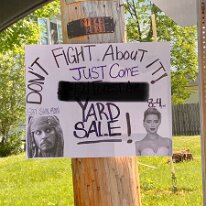 DON'T FIGHT. About IT!
JUST Come
YARD
SALE!
8-4